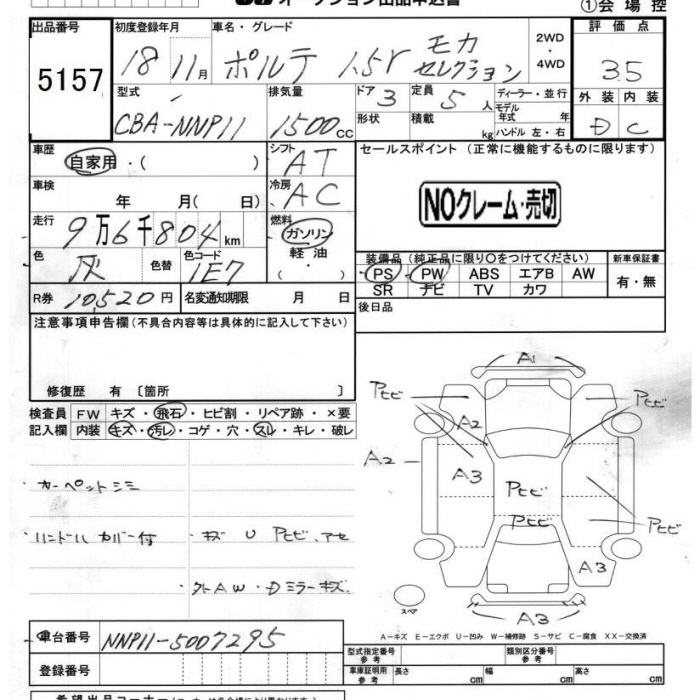 オークション出品申込書
①会場控
出品番号 初度登録年月 車名・グレード 2WD ・ 4WD 評価点
5157
18 11月 ポルテ 1.5r モカセレクション 3.5
型式 排気量 ドア 3 定員 5人 ディーラー・並行 外装 内装
CBA-NNP11 1500cc 形状 積載 kg モデル年式 年 ハンドル 左・右 D C
車歴 自家用・( ) シフト AT セールスポイント (正常に機能するものに限ります)
車検 年 月( 日) 冷房 AC NOクレーム・売切
走行 9万6千804km 燃料 ガソリン 軽油 ( )
色 灰 色替 色コード 1E7 装備品 (純正品に限り○をつけてください) 新車保証書
PS PW ABS エアB AW 有・無
SR ナビ TV カワ
R券 10,520円 名変通知期限 月 日 後日品
注意事項申告欄(不具合内容等は具体的に記入して下さい)
修復歴 有 〔箇所 〕
検査員 FW キズ・飛石・ヒビ割・リペア跡・×要
記入欄 内装 キズ・汚レ・コゲ・穴・スレ・キレ・破レ
カーペットシミ
ハンドルカバー付 キズ U Pヒビ、アセ
クトAW・Dミラーキズ
A1
Pヒビ Pヒビ
A2
A2 A3 Pヒビ
Pヒビ Pヒビ
A3
A3
スペア
A-キズ E-エクボ U-凹み W-補修跡 S-サビ C-腐食 XX-交換済
車台番号 NNP11-5007295
登録番号
型式指定番号 参考 類別区分番号 参考
車庫証明用 参考 長さ cm 幅 cm 高さ cm